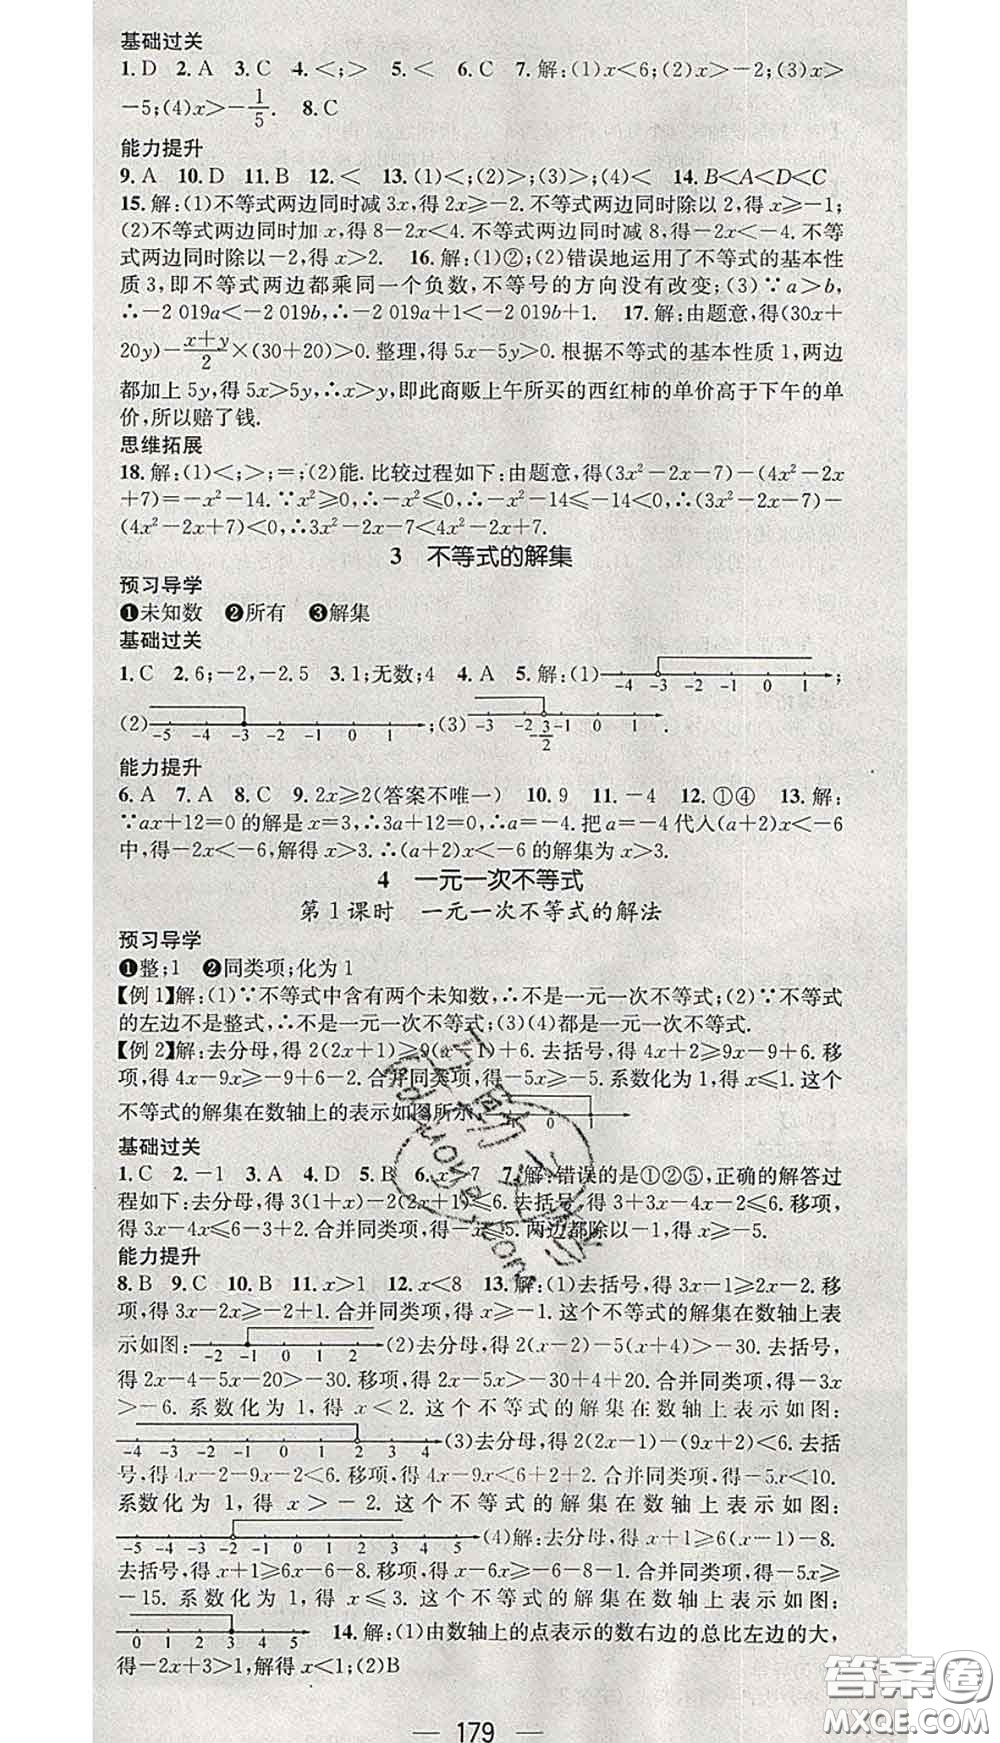 基础过关
1. D 2. A 3. C 4. <;> 5. < 6. C 7. 解:(1)x<6;(2)x>-2;(3)x>
-5;(4)x>-1/5. 8. C
能力提升
9. A 10. D 11. B 12. < 13. (1)<;(2)>;(3)>;(4)< 14. B<A<D<C
15. 解:(1)不等式两边同时减 3x,得 2x≥-2. 不等式两边同时除以 2,得 x≥-1;
(2)不等式两边同时加 x,得 8-2x<4. 不等式两边同时减 8,得-2x<-4. 不等
式两边同时除以-2,得 x>2. 16. 解:(1)②;(2)错误地运用了不等式的基本性
质 3,即不等式两边都乘同一个负数,不等号的方向没有改变;(3)∵a>b,
∴-2 019a<-2 019b,∴-2 019a+1<-2 019b+1. 17. 解:由题意,得(30x+
20y)-(x+y)/2×(30+20)>0. 整理,得 5x-5y>0. 根据不等式的基本性质 1,两边
都加上 5y,得 5x>5y,∴x>y,即此商贩上午所买的西红柿的单价高于下午的单
价,所以赔了钱.
思维拓展
18. 解:(1)<;>;=;(2)能. 比较过程如下:由题意,得(3x²-2x-7)-(4x²-2x
+7)=-x²-14. ∵x²≥0,∴-x²≤0,∴-x²-14≤-14<0,∴(3x²-2x-7)-
(4x²-2x+7)<0,∴3x²-2x-7<4x²-2x+7.
3 不等式的解集
预习导学
❶未知数 ❷所有 ❸解集
基础过关
1. C 2. 6;-2,-2.5 3. 1;无数;4 4. A 5. 解:(1) -4 -3 -2 -1 0 1 ;
(2) -5 -4 -3 -2 -1 0 1 ;(3) -3 -2 -3/2 -1 0 1 .
能力提升
6. A 7. A 8. C 9. 2x≥2(答案不唯一) 10. 9 11. -4 12. ①④ 13. 解:
∵ax+12=0 的解是 x=3,∴3a+12=0,∴a=-4. 把 a=-4 代入(a+2)x<-6
中,得-2x<-6,解得 x>3. ∴(a+2)x<-6 的解集为 x>3.
4 一元一次不等式
第 1 课时 一元一次不等式的解法
预习导学
❶整;1 ❷同类项;化为 1
【例 1】解:(1)∵不等式中含有两个未知数,∴不是一元一次不等式;(2)∵不等式
的左边不是整式,∴不是一元一次不等式;(3)(4)都是一元一次不等式.
【例 2】解:去分母,得 2(2x+1)≥9(x-1)+6. 去括号,得 4x+2≥9x-9+6. 移
项,得 4x-9x≥-9+6-2. 合并同类项,得-5x≥-5. 系数化为 1,得 x≤1. 这个
不等式的解集在数轴上的表示如图所示. 0 1
基础过关
1. C 2. -1 3. A 4. D 5. B 6. 7. 解:错误的是①②⑤,正确的解答过
程如下:去分母,得 3(1+x)-2(2x+1)≤6. 去括号,得 3+3x-4x-2≤6. 移项,
得 3x-4x≤6-3+2. 合并同类项,得-x≤5. 两边都除以-1,得 x≥-5.
能力提升
8. B 9. C 10. B 11. x>1 12. x<8 13. 解:(1)去括号,得 3x-1≥2x-2. 移
项,得 3x-2x≥-2+1. 合并同类项,得 x≥-1. 这个不等式的解集在数轴上表
示如图: -2 -1 0 1 2 (2)去分母,得 2(x-2)-5(x+4)>-30. 去括号,
得 2x-4-5x-20>-30. 移项,得 2x-5x>-30+4+20. 合并同类项,得-3x
>-6. 系数化为 1,得 x<2. 这个不等式的解集在数轴上表示如图:
-4 -3 -2 -1 0 1 2 3 4 (3)去分母,得 2(2x-1)-(9x+2)<6. 去括
号,得 4x-2-9x-2<6. 移项,得 4x-9x<6+2+2. 合并同类项,得-5x<10.
系数化为 1,得 x>-2. 这个不等式的解集在数轴上表示如图:
-5 -4 -3 -2 -1 0 1 2 3 4 5 (4)解:去分母,得 x+1≥6(x-1)-8.
去括号,得 x+1≥6x-6-8. 移项,得 x-6x≥-6-8-1. 合并同类项,得-5x≥
-15. 系数化为 1,得 x≤3. 这个不等式的解集在数轴上表示如图:
0 1 2 3 4 5 14. 解:(1)由数轴上的点表示的数右边的总比左边的大,
得-2x+3>1,解得 x<1;(2)B
— 179 —
答案圈
MXQE.COM